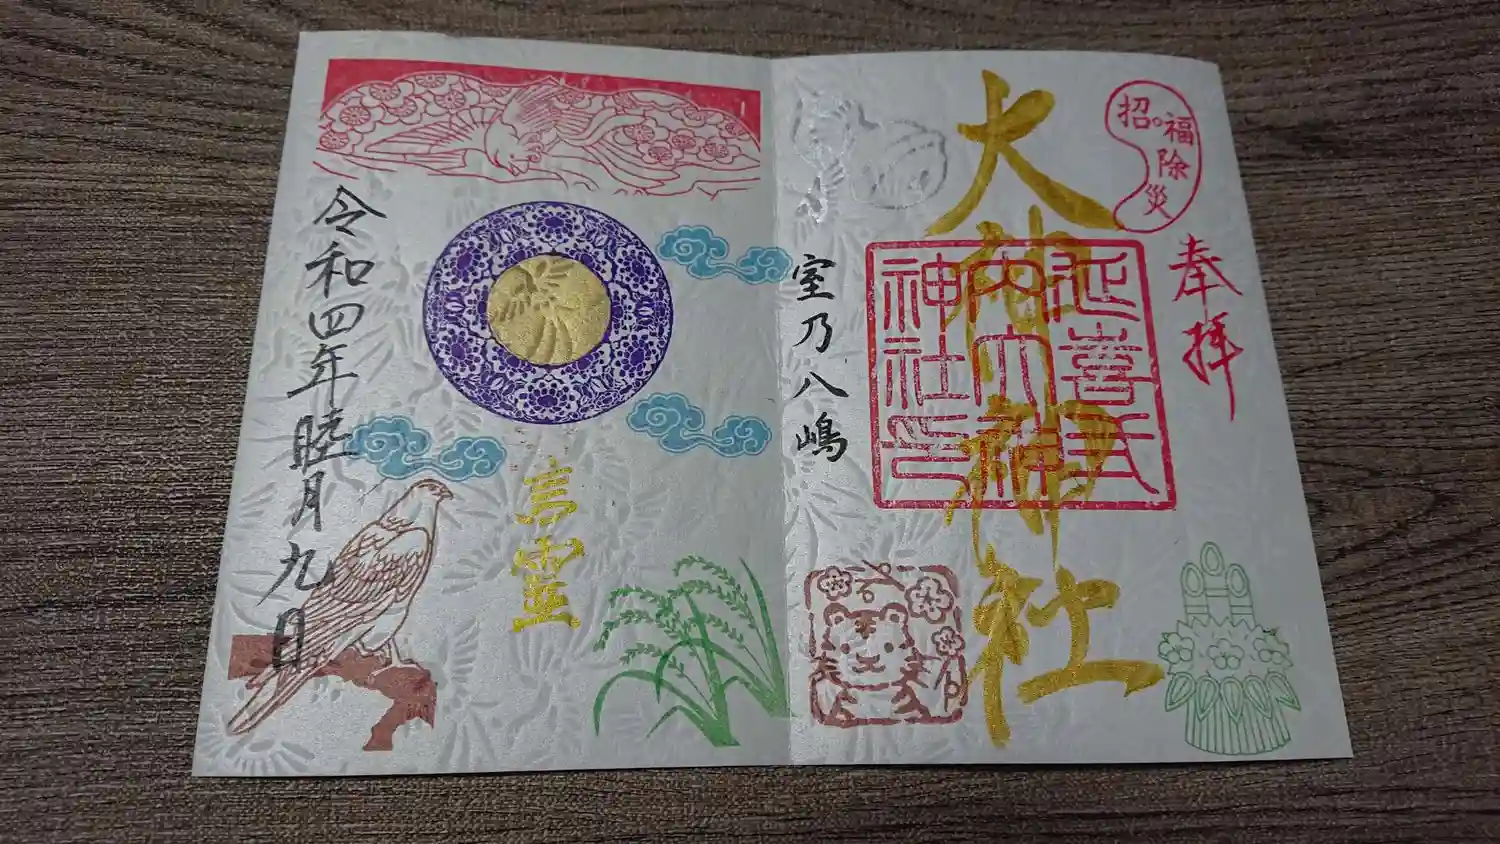 招福除災
奉拝
大神神社
延喜式
内大神
神社印
室乃八嶋
言霊
令和四年睦月九日